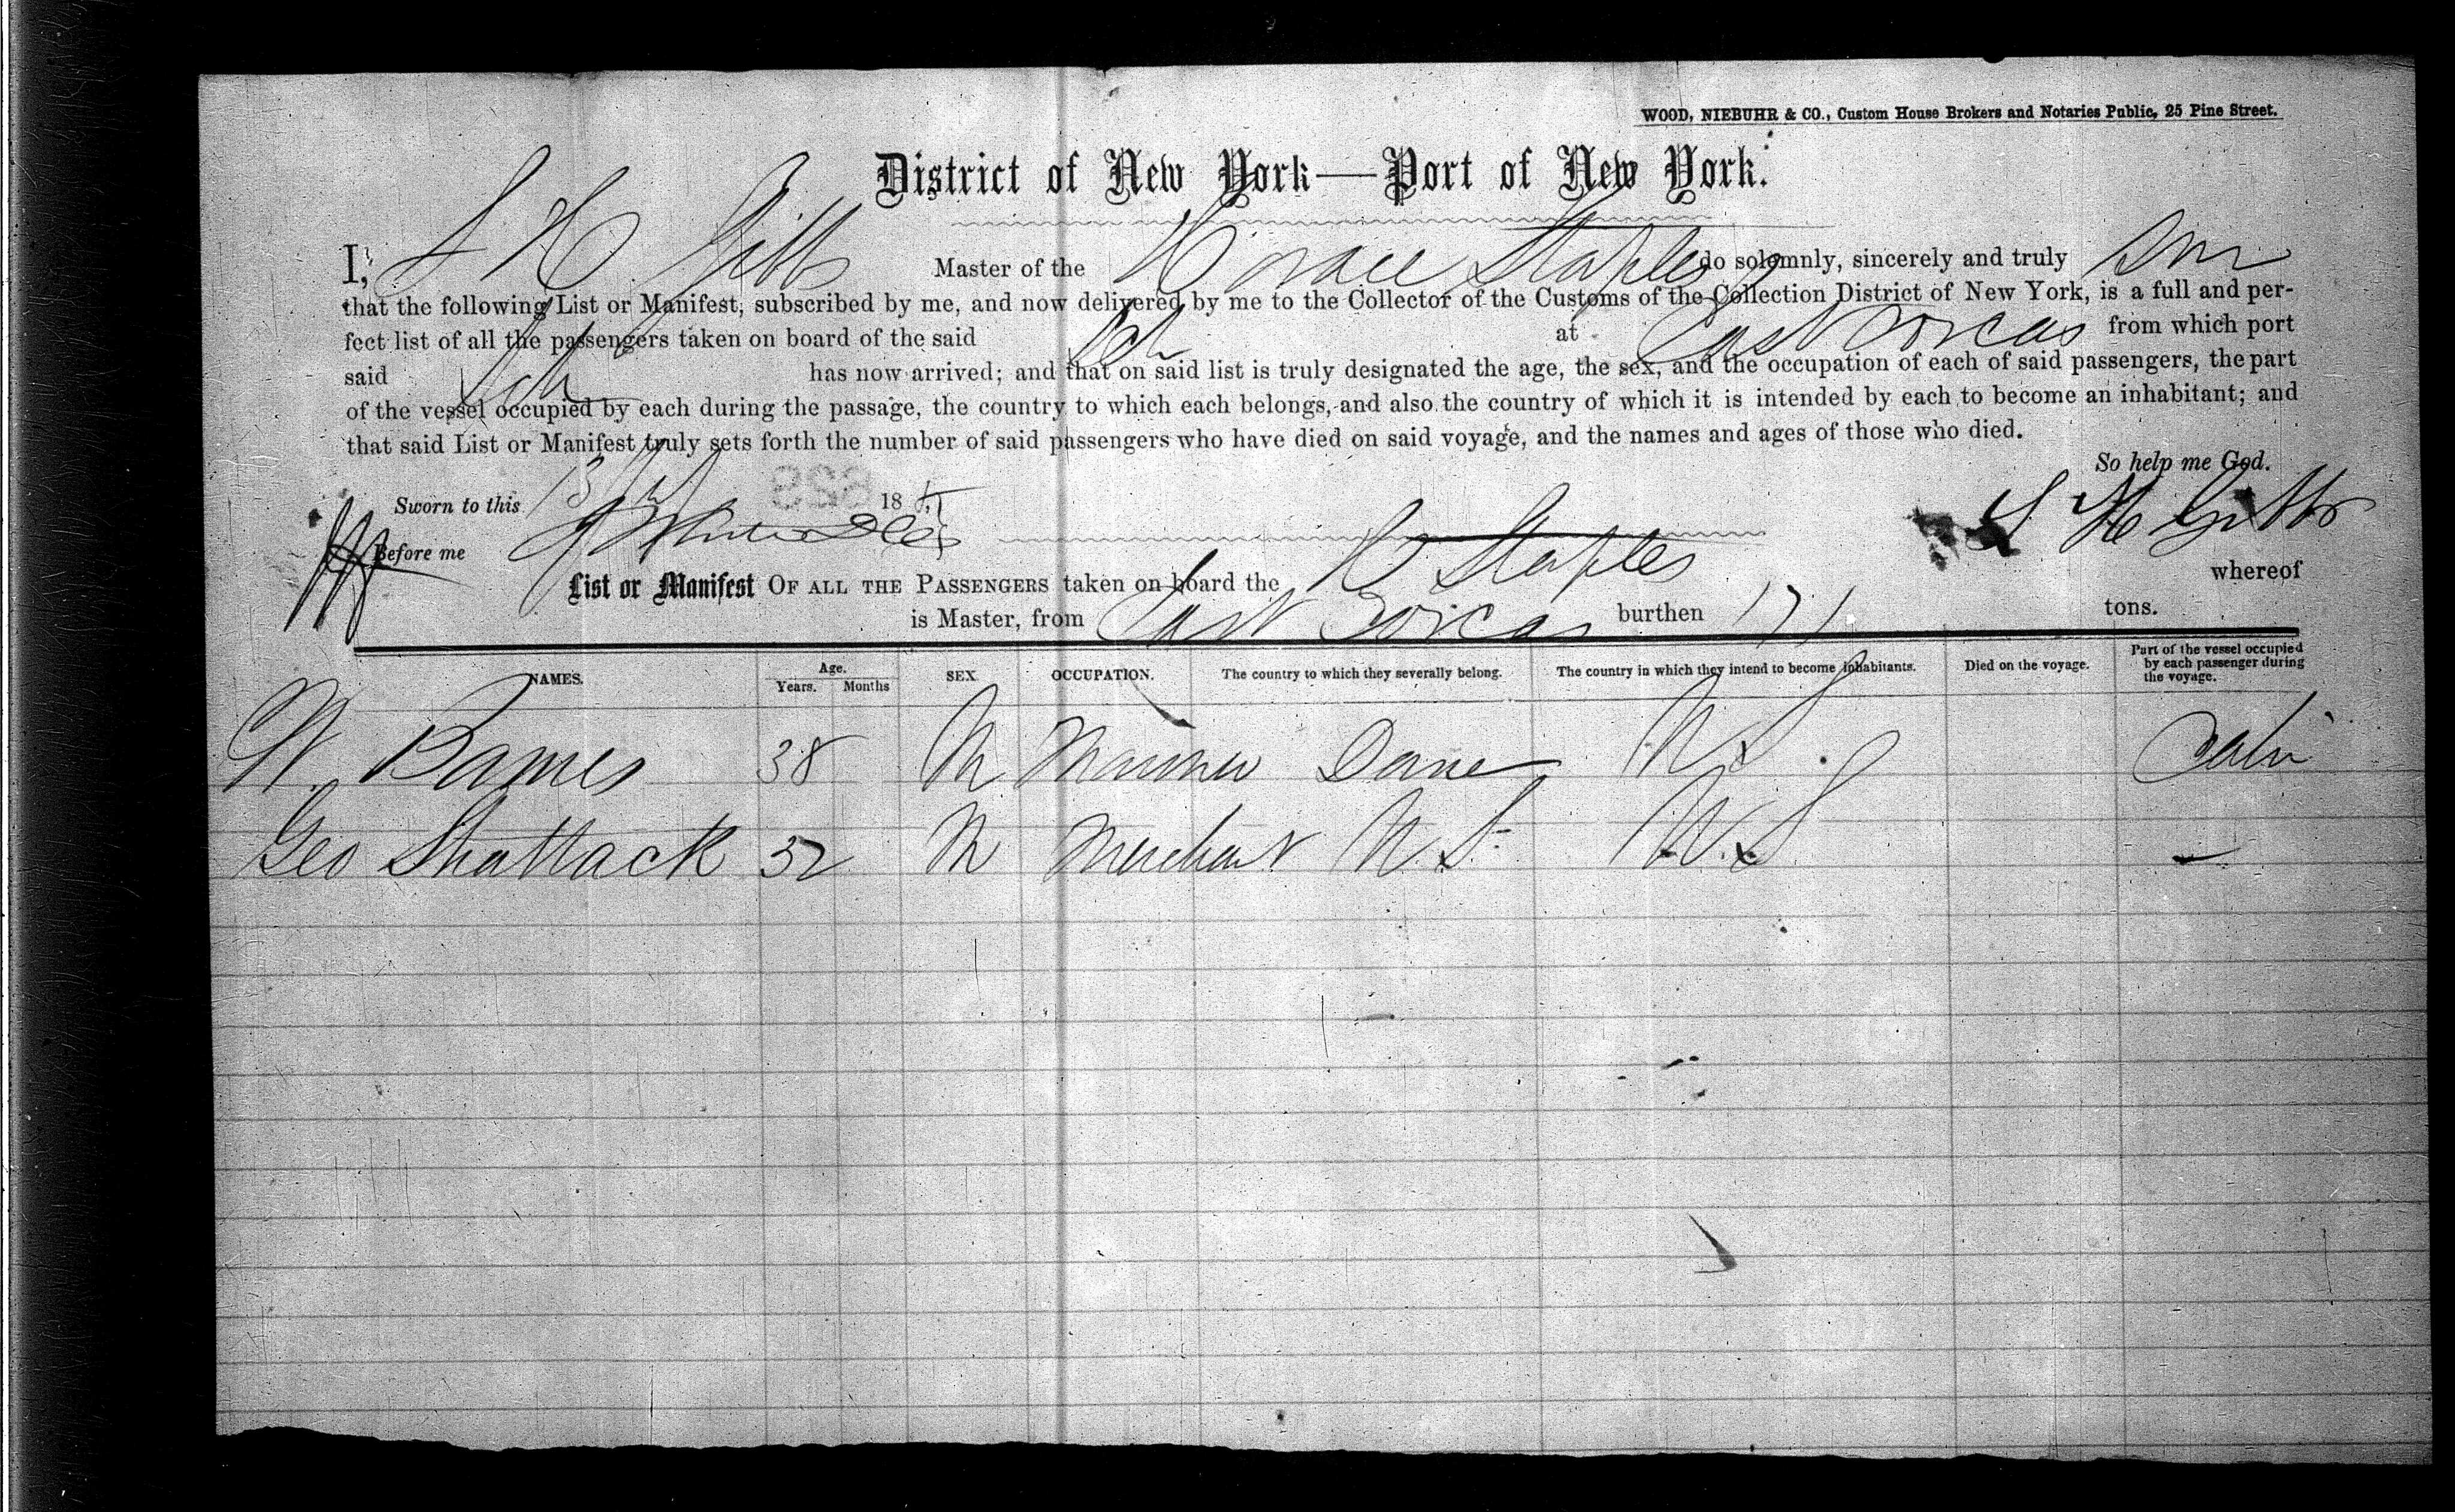 WOOD, NIEBUHR & CO., Custom House Brokers and Notaries Public, 25 Pine Street.
District of New York—Port of New York.
I, S H Gibbs Master of the Horace Staples do solemnly, sincerely and truly
that the following List or Manifest, subscribed by me, and now delivered by me to the Collector of the Customs of the Collection District of New York, is a full and per-
fect list of all the passengers taken on board of the said Sch at East Corcas from which port
said Sch has now arrived; and that on said list is truly designated the age, the sex, and the occupation of each of said passengers, the part
of the vessel occupied by each during the passage, the country to which each belongs, and also the country of which it is intended by each to become an inhabitant; and
that said List or Manifest truly sets forth the number of said passengers who have died on said voyage, and the names and ages of those who died.
So help me God.
Sworn to this 18
S H Gibbs
Before me
List or Manifest OF ALL THE PASSENGERS taken on board the H Staples whereof
is Master, from East Corcas burthen 171 tons.
NAMES. Age. Years. Months SEX. OCCUPATION. The country to which they severally belong. The country in which they intend to become inhabitants. Died on the voyage. Part of the vessel occupied by each passenger during the voyage.
W. Bames 38 M Mariner Dane U S. Cabin
Geo Shattack 32 M Merchant U.S. U.S